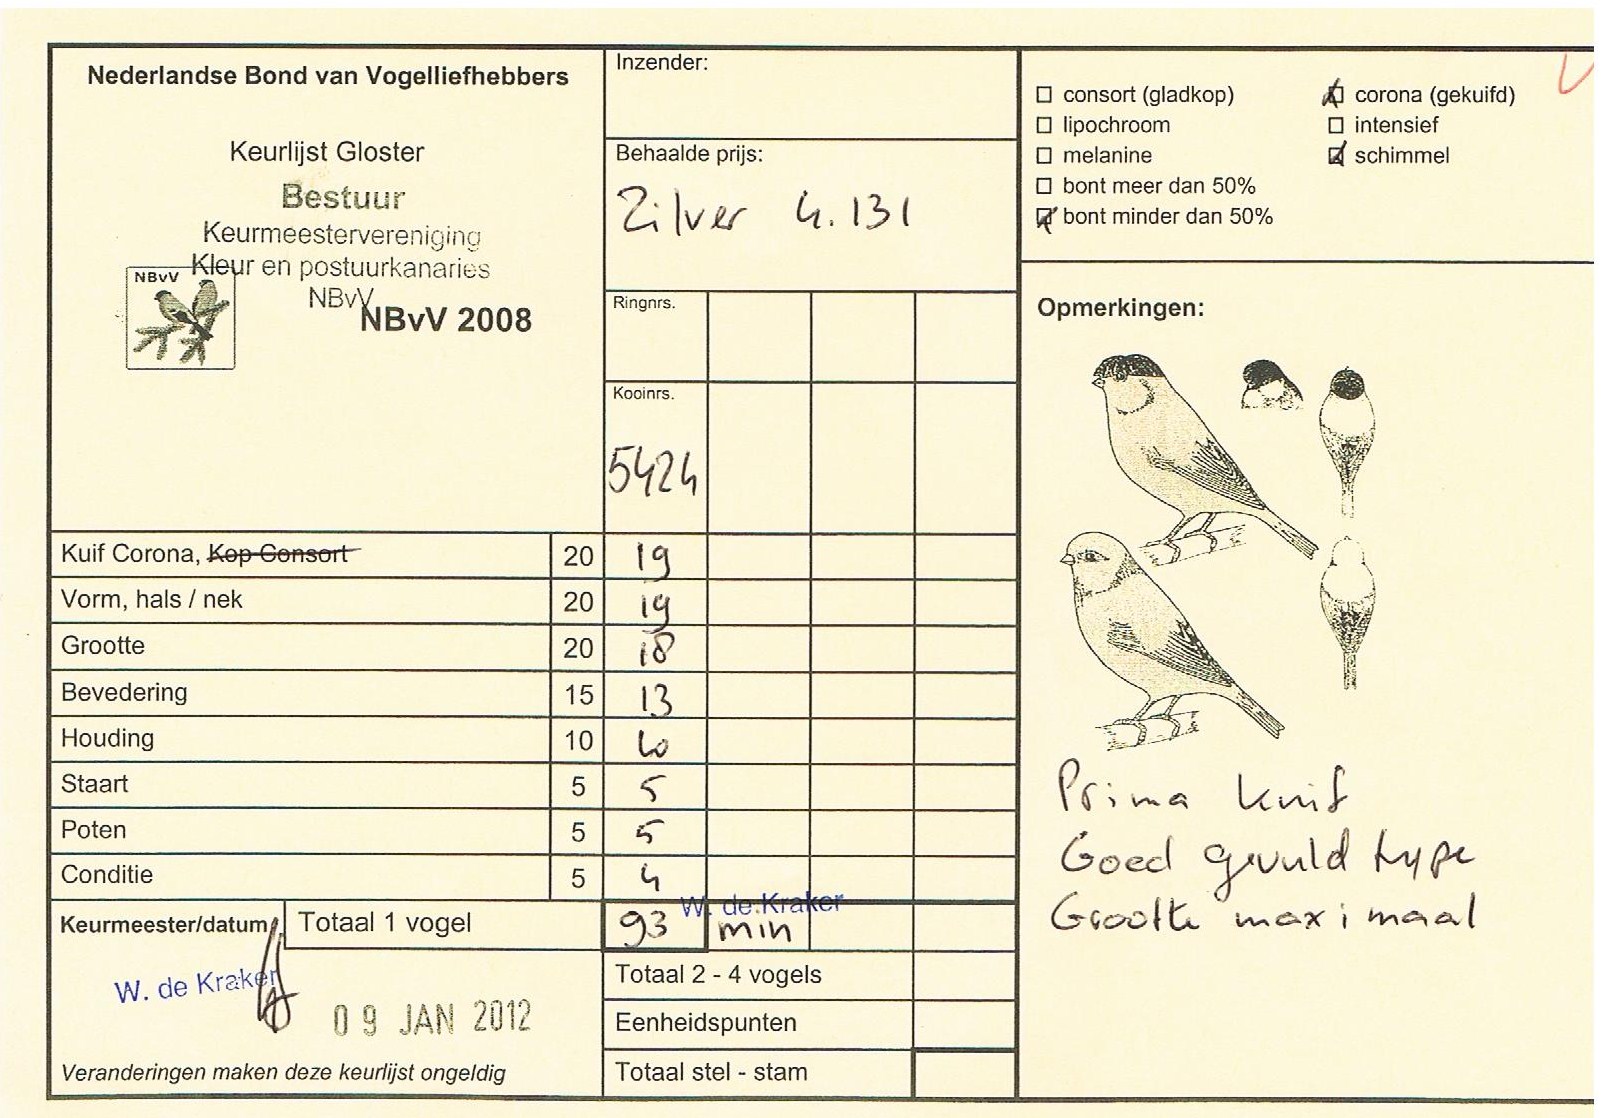 Nederlandse Bond van Vogelliefhebbers
Keurlijst Gloster
Bestuur
Keurmeestervereniging
Kleur en postuurkanaries
NBvV
NBvV
NBvV 2008
Inzender:
Behaalde prijs:
Zilver 4.131
Ringnrs.
Kooinrs.
5424
consort (gladkop)
corona (gekuifd)
lipochroom
intensief
melanine
schimmel
bont meer dan 50%
bont minder dan 50%
Opmerkingen:
Kuif Corona, Kop Consort 20 19
Vorm, hals / nek 20 19
Grootte 20 18
Bevedering 15 13
Houding 10 10
Staart 5 5
Poten 5 5
Conditie 5 4
Keurmeester/datum
Totaal 1 vogel 93 min
W. de Kraker
W. de Kraker
09 JAN 2012
Totaal 2 - 4 vogels
Eenheidspunten
Totaal stel - stam
Veranderingen maken deze keurlijst ongeldig
Prima kuif
Goed gevuld type
Grootte maximaal